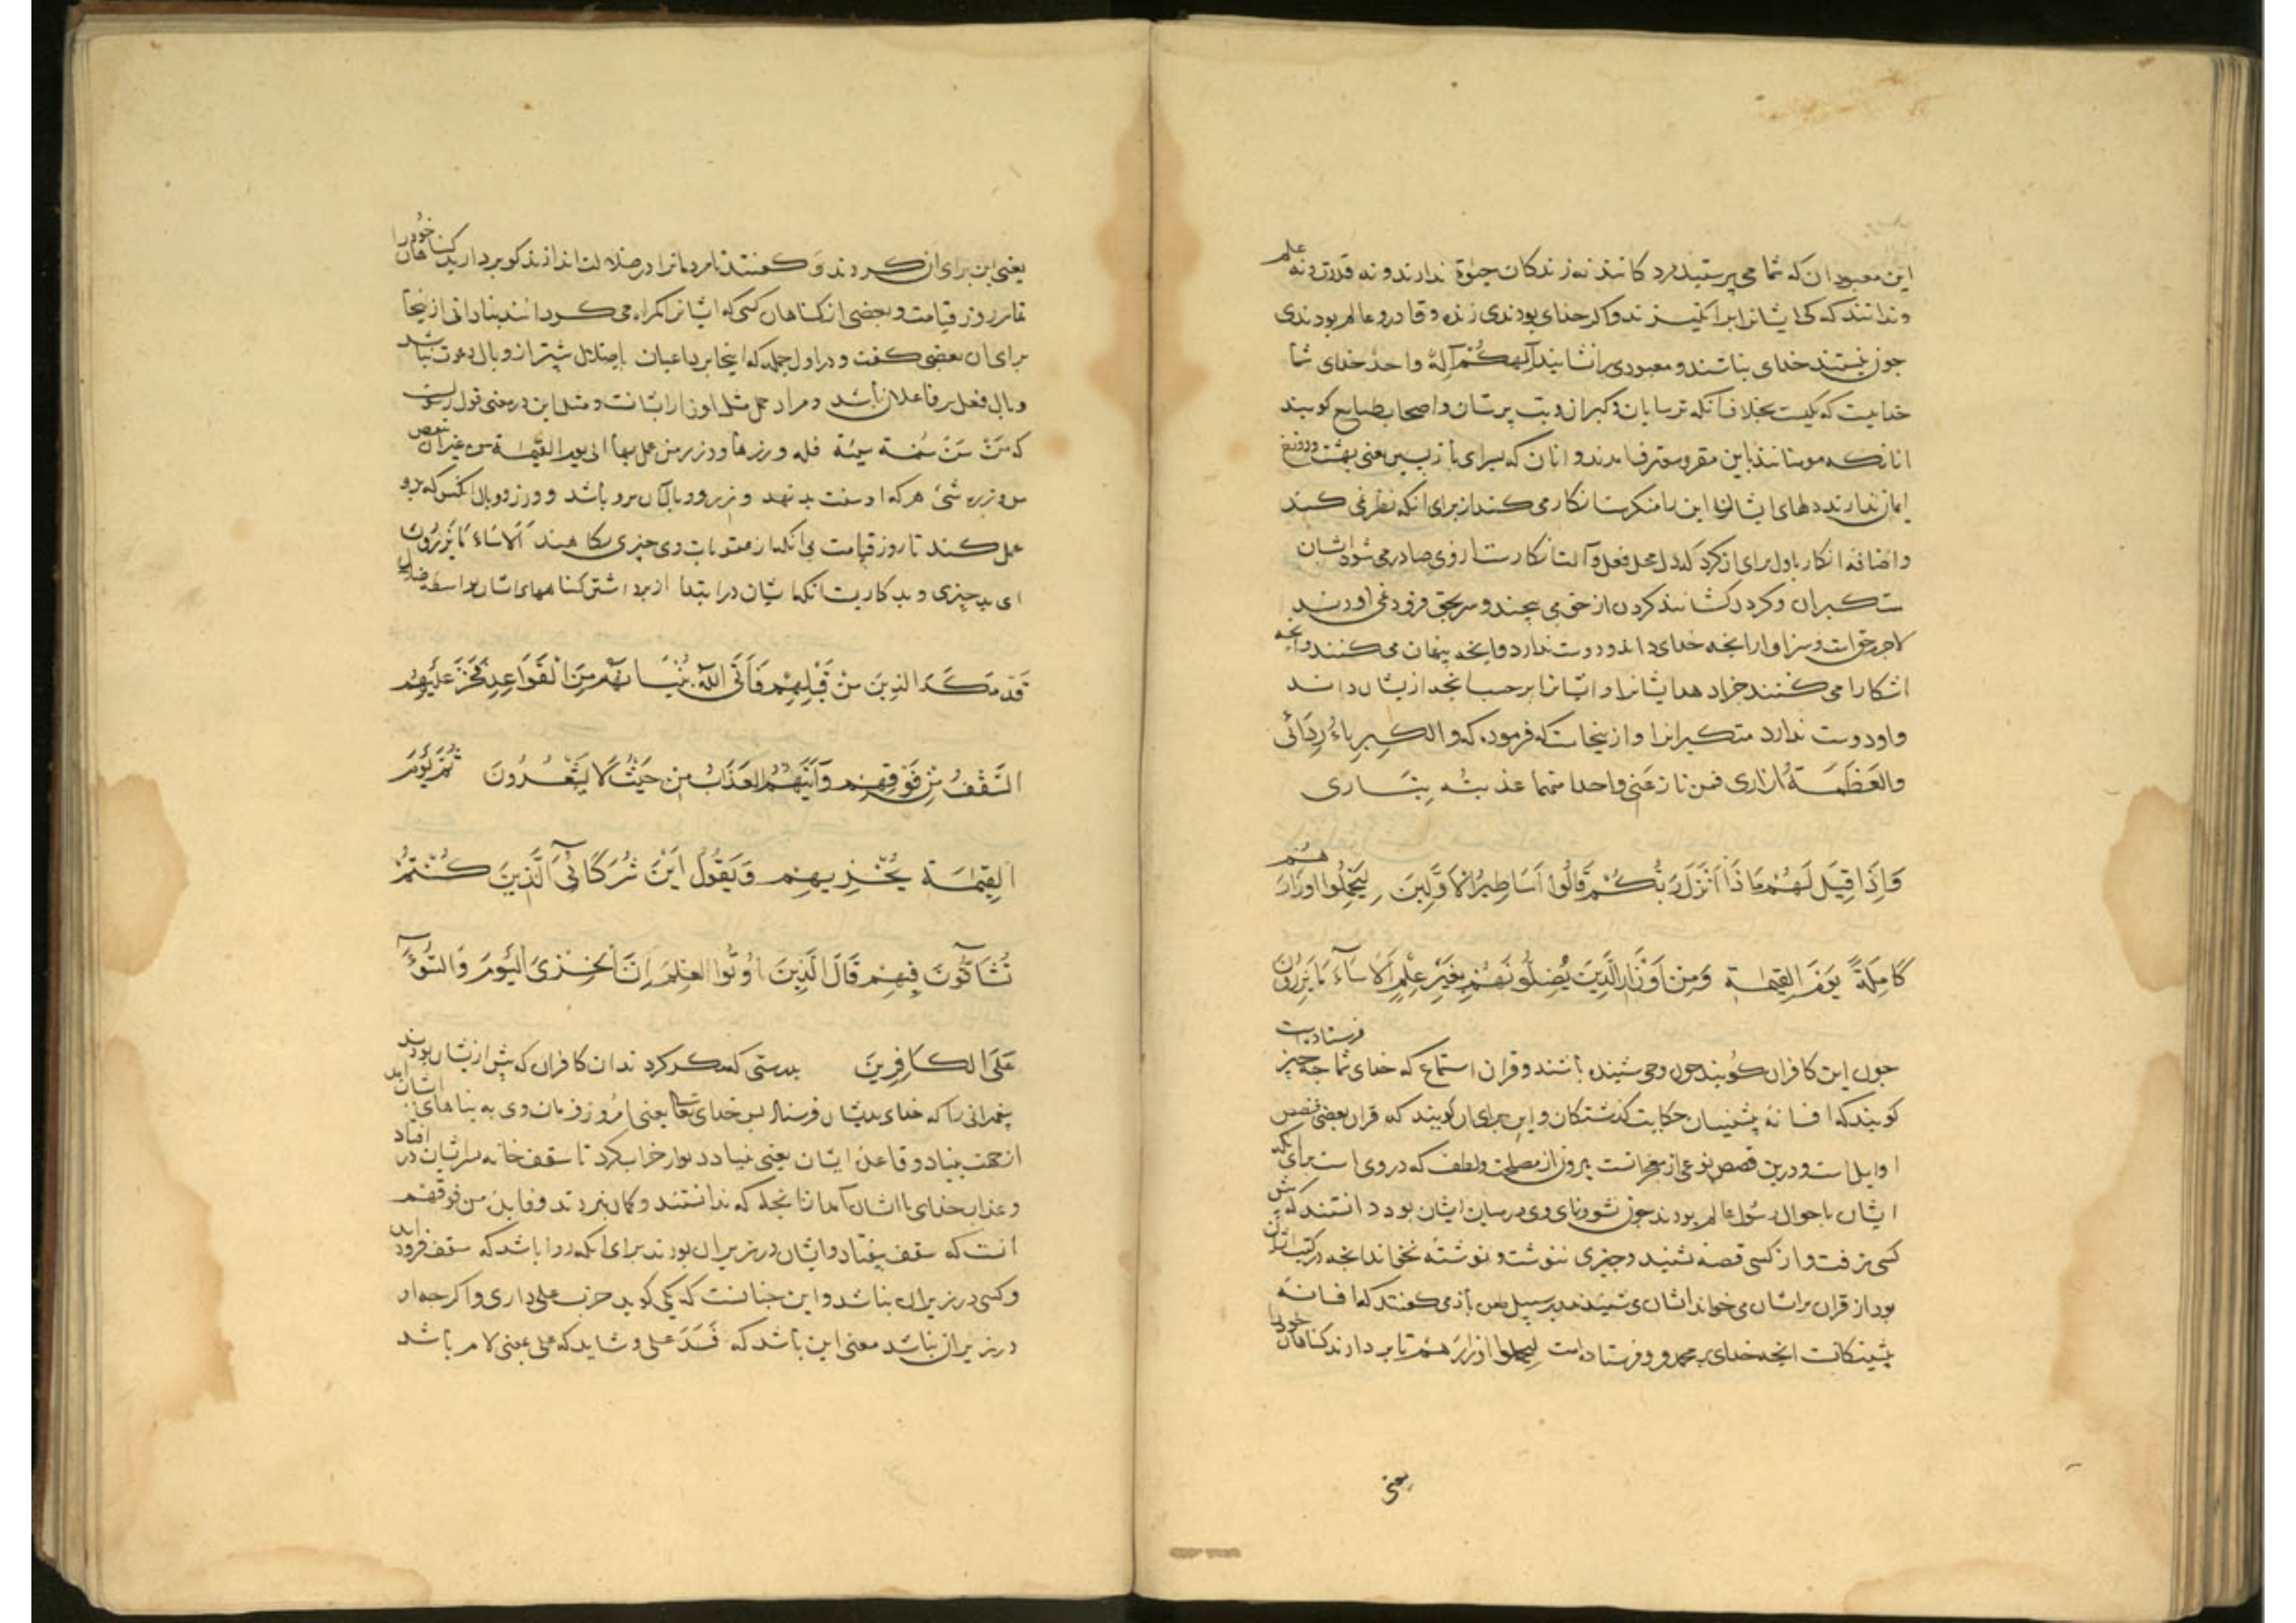 این معبودان که شما می پرستید مرد کانند نه زندکان حیوة ندارند و نه قدرت و نه علم
و ندانند که کی ایشانرا برانکیزند و اکر خدای بودندی زنده و قادر و عالم بودندی
چون نیستند خدای نباشند و معبودی را نشایند آلهکم اله واحد خدای شما
خداییست که یکیست بخلاف آنکه ترسایان و کبران و بت پرستان و اصحاب طبایع کویند
انانکه مومنانند باین مقر و معترف اند و انان که بسرای باز پسین یعنی بهشت و دوزخ
ایمان ندارند دلهای ایشان این را منکرست انکار می کنند از برای انکه نظر نمی کنند
و اضافه انکار با دل برای ان کرد که دل محل فعل و آلت انکارست از وی صادر می شود ایشان
متکبران و کردن کشانند کردن از حق می پیچند و سر بحق فرود نمی اورند
لاجرم حق است و سزاوار انچه خدای داند و دوست ندارد و انچه پنهان می کنند و انچه
اشکارا می کنند جزا دهد ایشانرا و ایشانرا بر حسب انچه از یشان داند
و او دوست ندارد متکبرانرا و از ینجاست که فرموده که و الکبریاءُ رِدَائی
والعَظَمَةُ ازاری فمن نازعَنی واحدا منهما عذبتُه بِنَاری
وَاِذَا قِیلَ لَهُمْ مَاذَا اَنْزَلَ رَبُّکُمْ قَالُوا اَسَاطِیرُ الْاَوَّلِینَ لِیَحْمِلُوا اَوْزَارَهُمْ
کَامِلَةً یَوْمَ القِیٰمَةِ وَمِنْ اَوْزَارِ الَّذِینَ یُضِلُّونَهُمْ بِغَیْرِ عِلْمٍ اَلَا سَآءَ مَا یَزِرُونَ
چون این کافران کویند چون وحی شنیده باشند و قران استماع که خدای شما چه چیز فرستاده است
کویند که افسانه پیشینیان حکایت کذشتکان و این برای ان کویند که قران بعضی قصص
اوایل است و درین قصص نوعی از معجزانست بیرون از مصلحت و لطف که در وی است برای انکه
ایشان باحوال رسول عالم بودند چون نشو و نمای وی در میان ایشان بود دانستند که پیش
کسی نرفت و از کسی قصه نشنید و چیزی ننوشت و نوشته نخواند انچه در کتب اشان
بود از قران بر اشان می خواند اشان می شنیدند بر سبیل طعن باز می کفتند که افسانه
پیشینکانست انچه خدای بر محمد فرو فرستاده است لیحملوا اوزارهم تا بر دارند کناهان خود را
یعنی
یعنی این برای ان کردند و کفتند تا مردمانرا در ضلالت اندازند کو بردارید کناهان خود را
تمام روز قیامت و بعضی از کناهان کسی که ایشانرا کمراه می کردانند بنادانی از ینجا
برای ان بعضی کفت و در اول جمله که اینجا بر داعیان باضلال بیش از وبال دعوت نباشد
وبال فعل بر فاعلان باشد و مراد حمل مثل اوزار ایشانست و مثل این در معنی قول رسول است
که مَنْ سَنَّ سُنة سیئة فله وزرها و وزر من عمل بها الی یوم القیٰمة من غیر ان ینقص
من وزره شئ هر که او سنت بد نهد وزر و وبال آن برو باشد و وزر و وبال انکس که بدو
عمل کند تا روز قیامت بی انکه از عقوبات وی چیزی بکاهند اَلَا سَاءَ مَا یَزِرُونَ
ای بد چیزی و بد کاریست انکه ایشان در ابتدا از برداشتن کناههای اشان بواسطه ضلال
قَدْ مَکَرَ الذِینَ مِنْ قَبْلِهِمْ فَاَتَی اللّٰهُ بُنْیَانَهُمْ مِنَ الْقَوَاعِدِ فَخَرَّ عَلَیْهِمُ
السَّقْفُ مِنْ فَوْقِهِمْ وَاَتٰیهُمُ العَذَابُ مِن حَیْثُ لَا یَشْعُرُونَ ثُمَّ یَوْمَ
القِیٰمَةِ یُخْزِیهِمْ وَیَقُولُ اَیْنَ شُرَکَائِیَ الَّذِینَ کُنْتُمْ
تُشَاقُّونَ فِیهِمْ قَالَ الَّذِینَ اُوتُوا العِلْمَ اِنَّ الْخِزْیَ الیَومَ وَالسُّوءَ
عَلَی الکَافِرِینَ بدرستی که مکر کردند ان کافران که پیش از یشان بودند
پیغمبرانی را که خدای بدیشان فرستاد پس خدای تعالی یعنی امر و فرمان وی به بناهای ایشان امد
از جهت بنیاد و قاعده ایشان یعنی بنیاد دیوار خراب کرد تا سقف خانه بر سر ایشان در افتاد
و عذاب خدای با ایشان آمد از انجا که که ندانستند و کمان نبردند و فایده من فوقهم
آنست که سقف بیفتاد و ایشان در زیر ان بودند برای انکه روا باشد که سقف فرود اید
و کسی در زیر ان نباشد و این چنانست که یکی کوید خرب علی داری و اکر چه او
در زیر ان نباشد معنی این باشد که فَسَدَ علی و شاید که علی بمعنی لام باشد